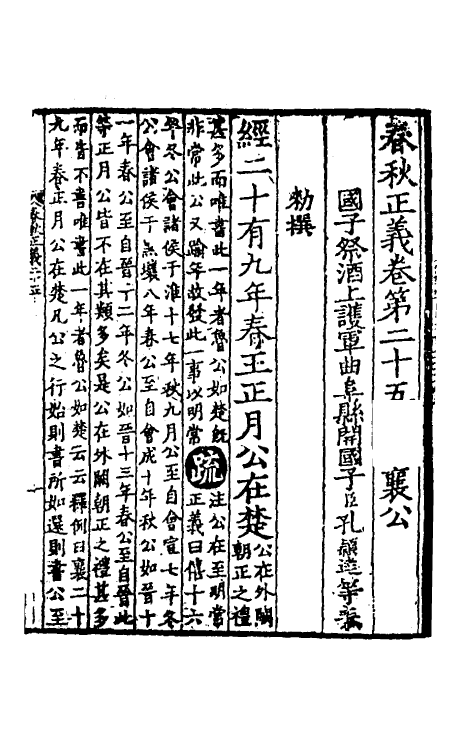 春秋正義卷第二十五　襄公
國子祭酒上護軍曲阜縣開國子臣孔穎達等奉
勑撰
經二十有九年春王正月公在楚
公在外闕
朝正之禮
甚多而唯書此一年者魯公如楚既
非常此公又踰年故發此一事以明常
疏
注公在至明常
正義曰僖十六
年冬公會諸侯于淮十七年秋九月公至自會宣七年冬
公會諸侯于黑壤八年春公至自會成十年秋公如晉十
一年春公至自晉十二年冬公如晉十三年春公至自晉此
等正月公皆不在其類多矣是公在外闕朝正之禮甚多
而皆不書唯書此一年者魯公如楚云云釋例曰襄二十
九年春正月公在楚凡公之行始則書所如還則書公至